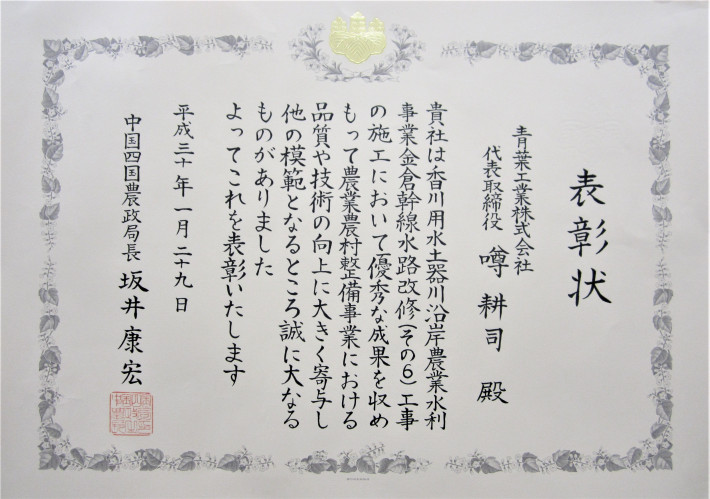 表彰状
青葉工業株式会社
代表取締役 噂 耕司 殿
貴社は香川用水土器川沿岸農業水利
事業金倉幹線水路改修(その6)工事
の施工において優秀な成果を収め
もって農業農村整備事業における
品質や技術の向上に大きく寄与し
他の模範となるところ誠に大なる
ものがありました
よってこれを表彰いたします
平成三十年一月二十九日
中国四国農政局長 坂井康宏